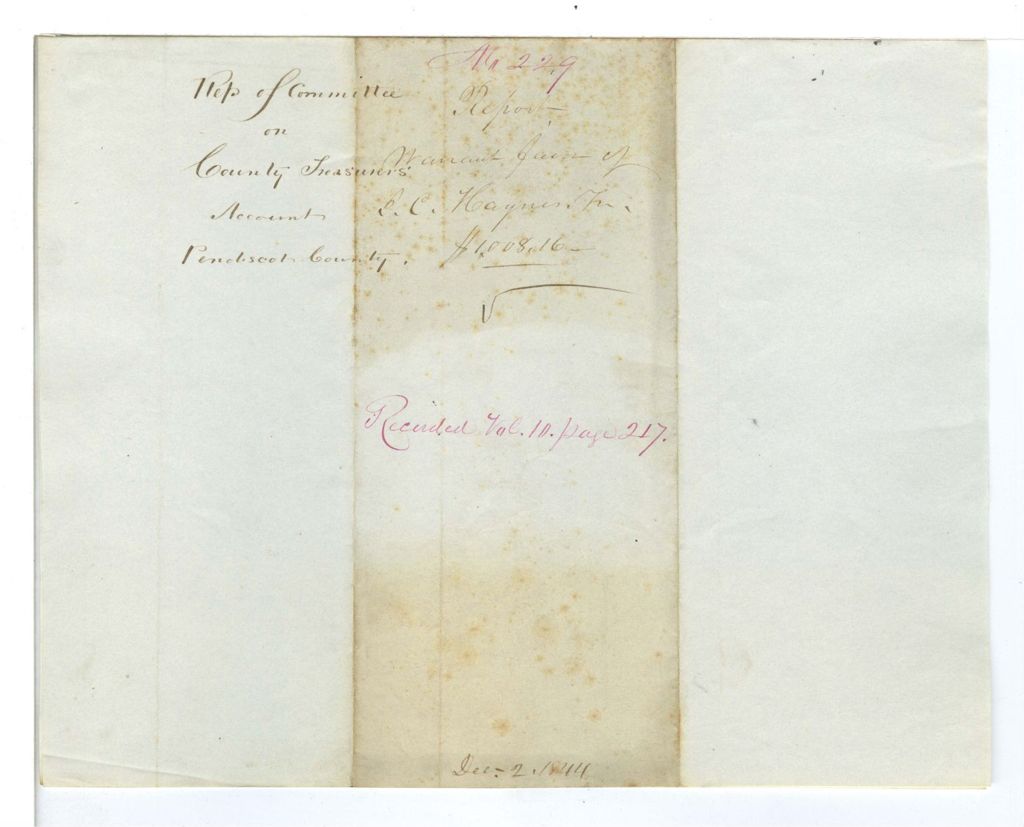 Rep of Committee
on
County Treasurers
Account
Penobscot County.
No 229
Report
Warrant favor of
J. C. Haynes Tr.
$1,008.16
Recorded Vol. 10. page 217.
Dec. 2. 1844